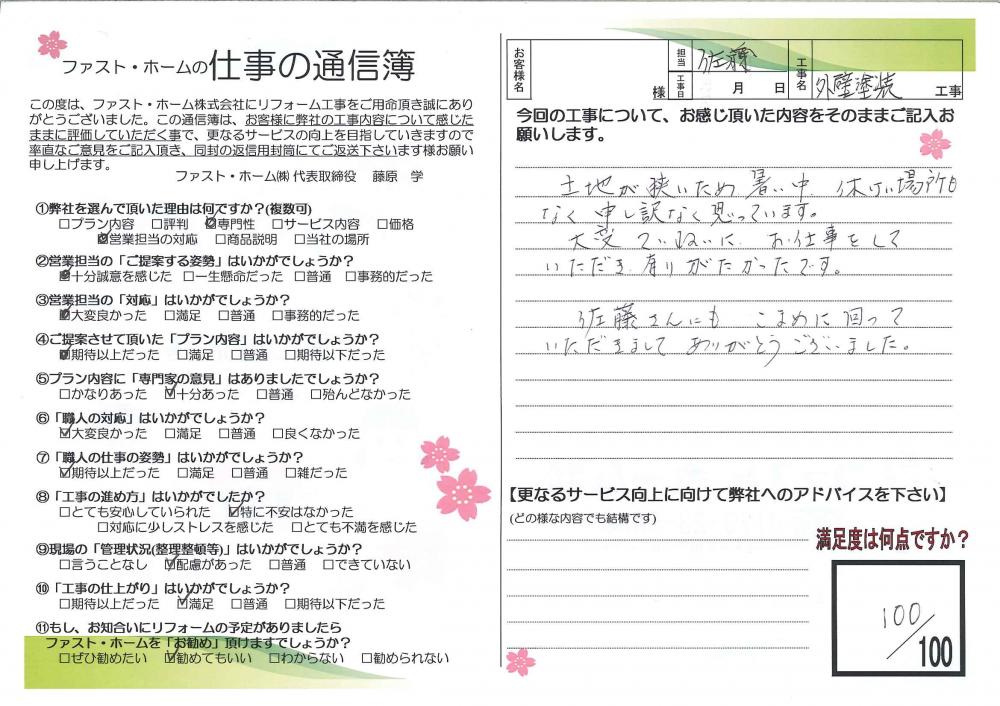 ファスト・ホームの仕事の通信簿
この度は、ファスト・ホーム株式会社にリフォーム工事をご用命頂き誠にあり
がとうございました。この通信簿は、お客様に弊社の工事内容について感じた
ままに評価していただく事で、更なるサービスの向上を目指していきますので
率直なご意見をご記入頂き、同封の返信用封筒にてご返送下さいます様お願い
申し上げます。
ファスト・ホーム㈱ 代表取締役 藤原 学
①弊社を選んで頂いた理由は何ですか?(複数可)
□プラン内容 □評判 ☑専門性 □サービス内容 □価格
☑営業担当の対応 □商品説明 □当社の場所
②営業担当の「ご提案する姿勢」はいかがでしょうか?
☑十分誠意を感じた □一生懸命だった □普通 □事務的だった
③営業担当の「対応」はいかがでしょうか?
☑大変良かった □満足 □普通 □事務的だった
④ご提案させて頂いた「プラン内容」はいかがでしょうか?
☑期待以上だった □満足 □普通 □期待以下だった
⑤プラン内容に「専門家の意見」はありましたでしょうか?
□かなりあった ☑十分あった □普通 □殆んどなかった
⑥「職人の対応」はいかがでしょうか?
☑大変良かった □満足 □普通 □良くなかった
⑦「職人の仕事の姿勢」はいかがでしょうか?
☑期待以上だった □満足 □普通 □雑だった
⑧「工事の進め方」はいかがでしたか?
□とても安心していられた ☑特に不安はなかった
□対応に少しストレスを感じた □とても不満を感じた
⑨現場の「管理状況(整理整頓等)」はいかがでしょうか?
□言うことなし ☑配慮があった □普通 □できていない
⑩「工事の仕上がり」はいかがでしょうか?
□期待以上だった ☑満足 □普通 □期待以下だった
⑪もし、お知合いにリフォームの予定がありましたら
ファスト・ホームを「お勧め」頂けますでしょうか?
□ぜひ勧めたい ☑勧めてもいい □わからない □勧められない
お客様名 様 担当 佐藤 工事日 月 日 工事名 外壁塗装 工事
今回の工事について、お感じ頂いた内容をそのままご記入お
願いします。
土地が狭いため 暑い中 休けい場所も
なく 申し訳なく思っています。
大変 ていねいに お仕事をして
いただき 有りがたかったです。
佐藤さんにも こまめに回って
いただきまして ありがとうございました。
【更なるサービス向上に向けて弊社へのアドバイスを下さい】
(どの様な内容でも結構です)
満足度は何点ですか?
100/100